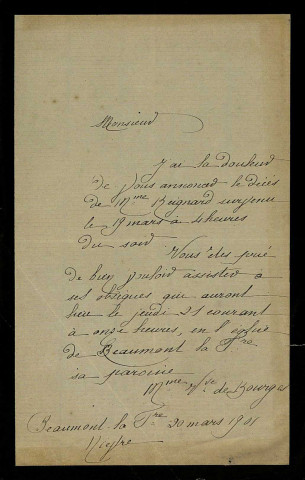 Monsieur
J'ai la douleur
de vous annoncer le décès
de Mme Bugnard survenu
le 19 mars à 4 heures
du soir.
Vous êtes prié
de bien vouloir assister à
ses obsèques qui auront
lieu le jeudi 21 courant
à onze heures, en l'église
de Beaumont la Fre
sa paroisse
Mme Vve de Bourges
Beaumont-la-Fre 20 mars 1901
Nièvre